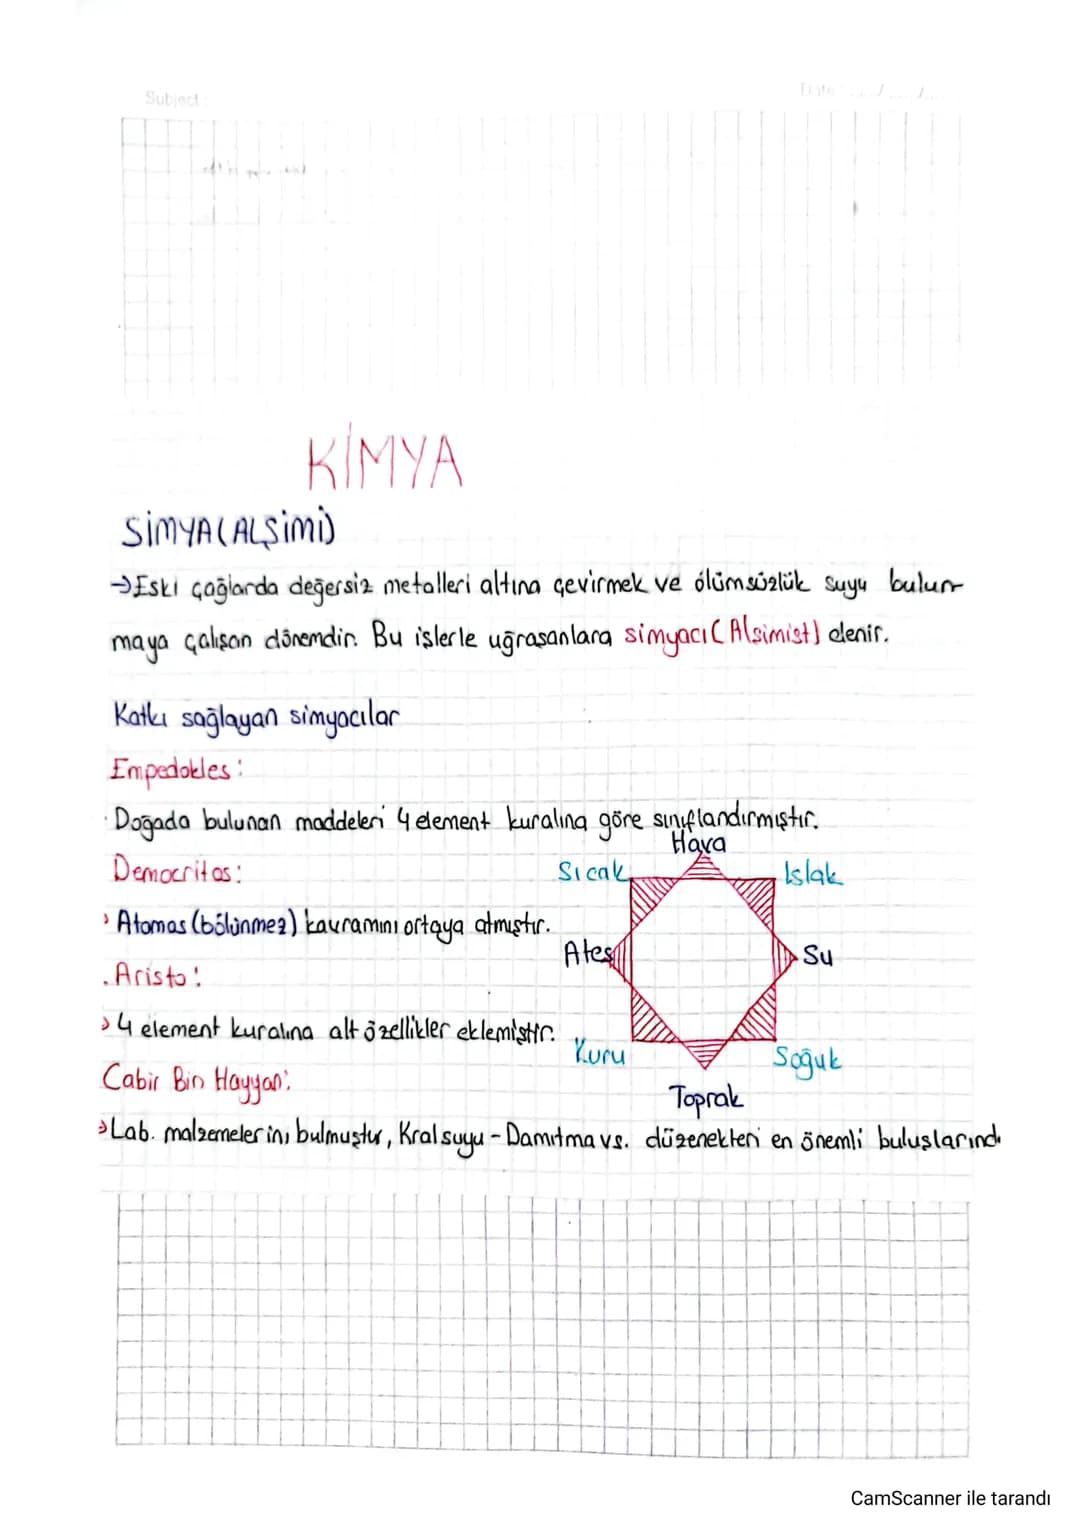 Subject:
Date: ..../..../....
KİMYA
SİMYA(ALŞİMİ)
→Eski çağlarda değersiz metalleri altına çevirmek ve ölümsüzlük suyu bulun-
maya çalışan dönemdir. Bu işlerle uğraşanlara simyacı(Alşimist) denir.
Katkı sağlayan simyacılar
Empedokles:
Doğada bulunan maddeleri 4 element kuralına göre sınıflandırmıştır.
Hava
Democritos:
Sıcak
Islak
Atomas(bölünmez) kavramını ortaya atmıştır.
Ateş
Su
Aristo:
4 element kuralına alt özellikler eklemiştir.
Kuru
Soğuk
Cabir Bin Hayyan:
Toprak
Lab. malzemelerini bulmuştur, Kral suyu - Damıtma vs. düzenekleri en önemli buluşlarındı
CamScanner ile tarandı